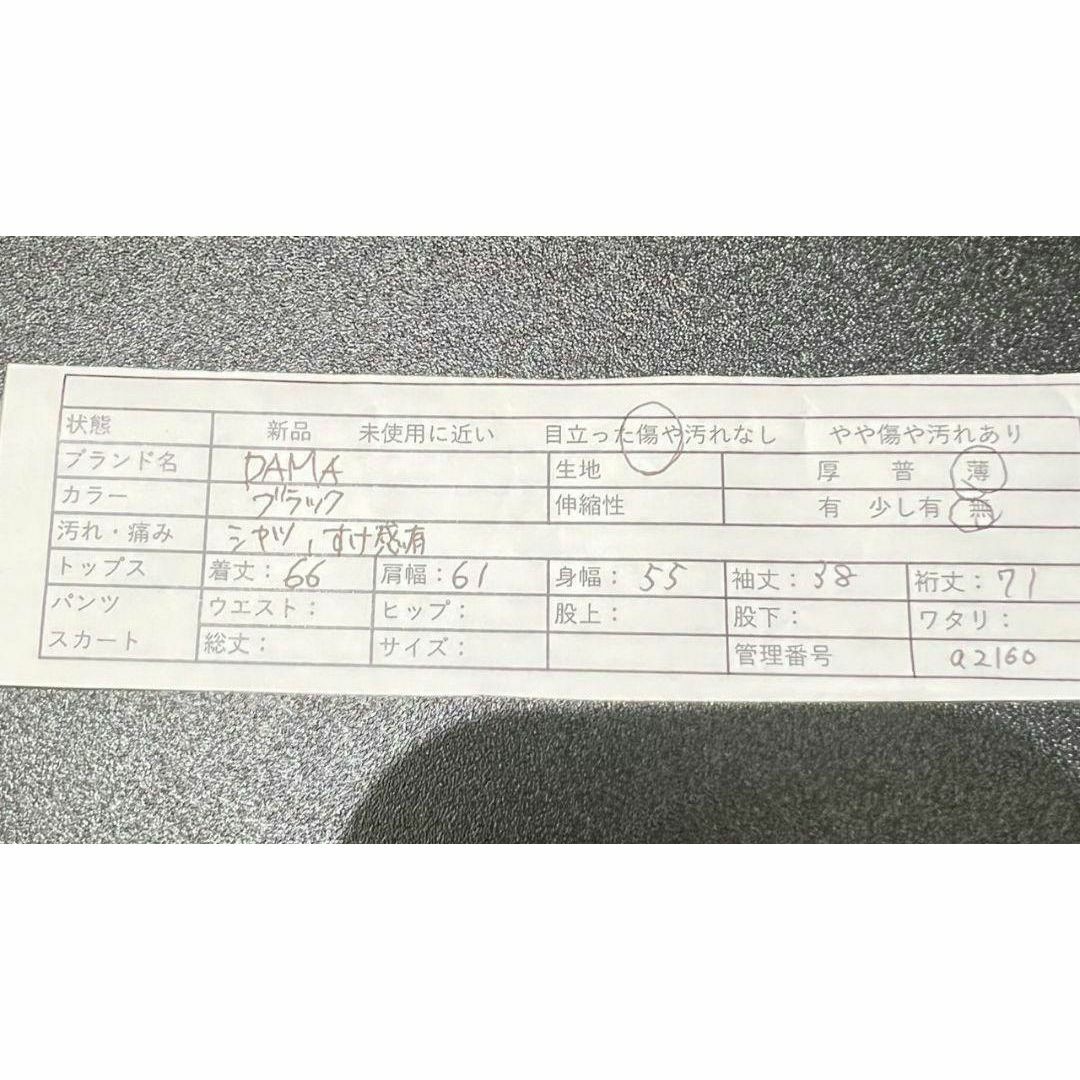 状態 新品 未使用に近い 目立った傷や汚れなし やや傷や汚れあり
ブランド名 DAMA 生地 厚 普 薄
カラー ブラック 伸縮性 有 少し有 無
汚れ・痛み シャツ，すけ感有
トップス 着丈：66 肩幅：61 身幅：55 袖丈：38 裄丈：71
パンツ ウエスト： ヒップ： 股上： 股下： ワタリ：
スカート 総丈： サイズ： 管理番号 a2160